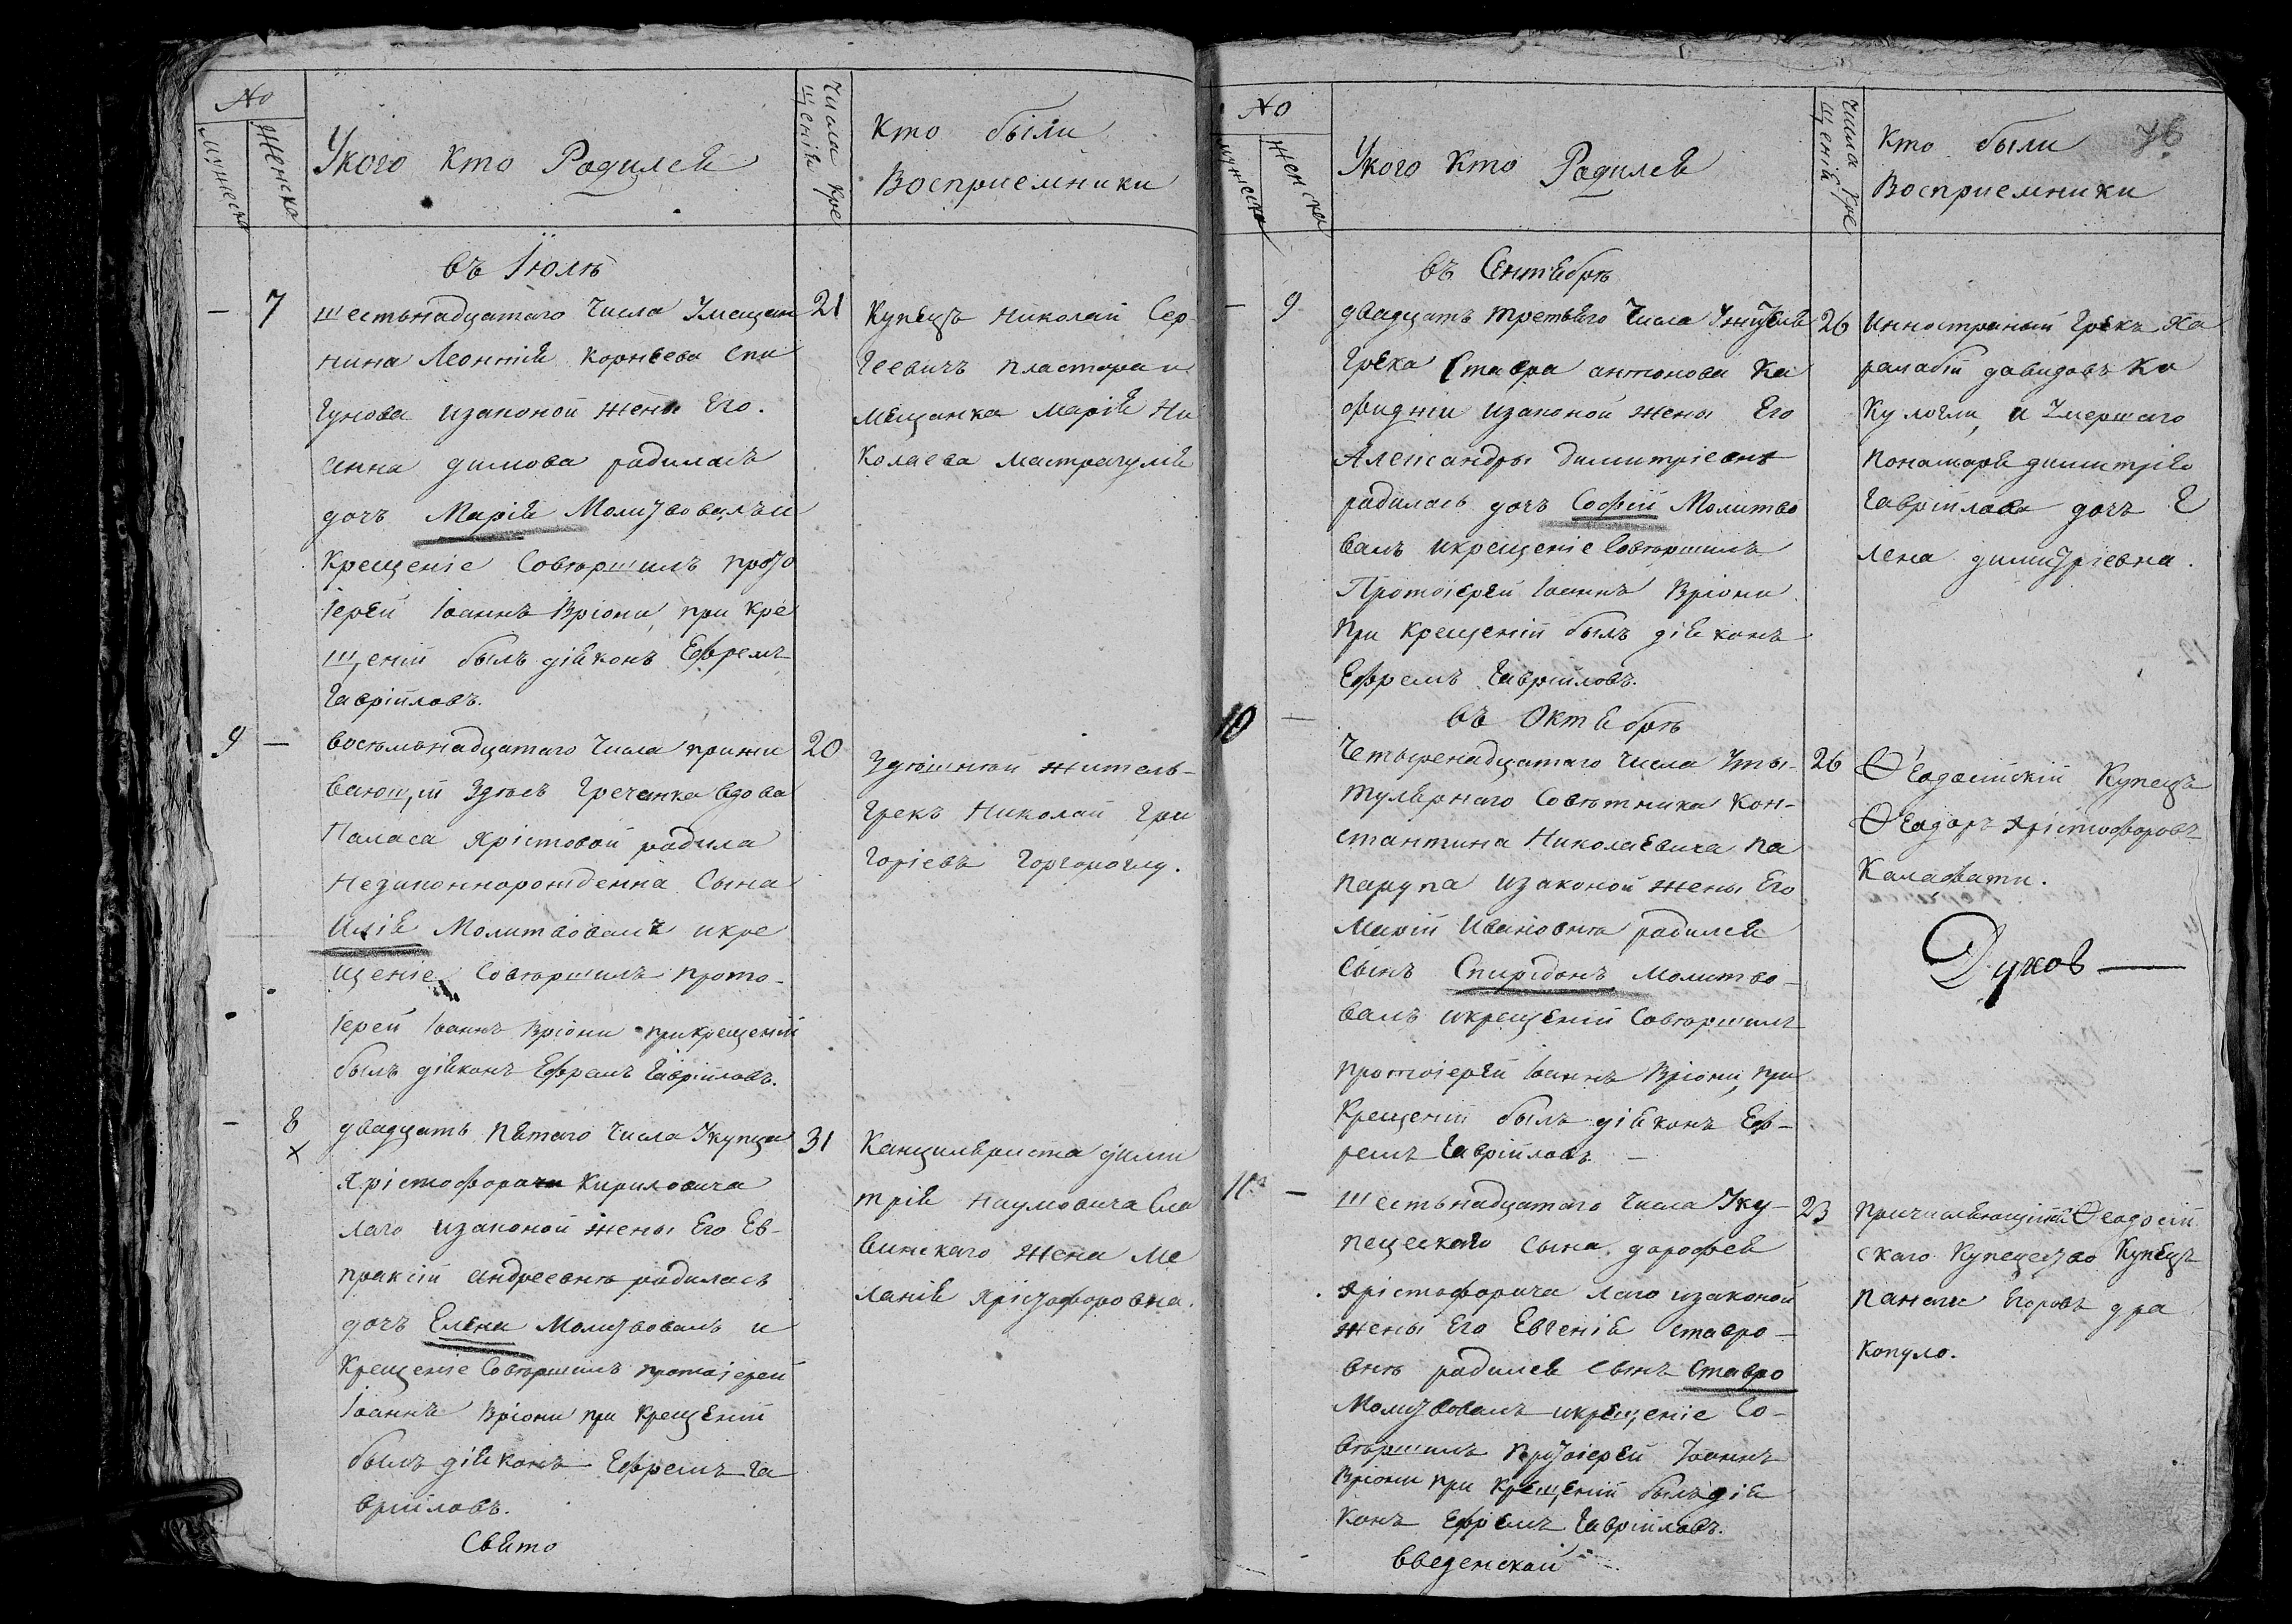 №
мужеска
женска
Укого Кто Родился
числа кре
щенія
Кто были
Восприемники
въ Іюлѣ
— 7
шестьнадцатаго числа Умещан
нина Леонтія Корнѣева Спи
гунова изаконой жены Его
анна димова родилась
дочь Марія Молитвовалъ и
Крещеніе Совѣршилъ прото
Іерей Іоаннъ Вріони, при Кре
щеній былъ діяконъ Ефремъ
Гавріиловъ.
21
Купецъ Николай Сер
геевичъ пластара и
мѣщанка Марія Ни
колаева мастрагулія
9 —
восѣмьнадцатаго числа прожи
вающ,ій Здѣсь Гречанка вдова
Паласа Хрістовой родила
незаконнорожденна Сына
Илія Молитвовалъ икре
щеніе Совѣршилъ прото
Іерей Іоаннъ Вріони прикрещеній
былъ діяконъ Ефремъ Гавріиловъ.
20
Здѣшній житель
Грекъ Николай Гри
горіевъ Горгороглу.
— 8
х
двадцать пятаго числа Укупца
Хрістофора Кириловича
лаго изаконой жены Его Ев-
праксій андреевнѣ родилась
дочь Елена Молитвовалъ и
Крещеніе Совѣршилъ протоіерей
Іоаннъ Вріони при Крещеній
былъ діяконъ Ефремъ Га
вріиловъ.
Свято
31
Канциляриста дими
трія Наумовича Сла
винскаго жена Ме
ланія Хрістофоровна.
№
мужеска
женска
Укого Кто Родился
числа кре
щеній
Кто были
Восприемники
76
въ Сентябрѣ
— 9
двадцать третьяго числа Унижѣн
Грека Ставра антонова Ка
фидніи изаконой жены Его
Александры Димитріевнѣ
родилась дочь Софій Молитво
валъ икрещеніе Совѣршилъ
Протоіерей Іоаннъ Вріони
При крещеній былъ діяконъ
Ефремъ Гавріиловъ.
26
Инностраный Грѣкъ Ха
рамбій давидовъ Ка
Кулогли, и Умершаго
Пономаря димитрія
Гавріилова дочь Е
лена димитріевна.
въ Октябрѣ
10 —
Четыренадцатаго числа Уты-
тулярнаго Совѣтника Кон-
стантина Николаевича Па
парупа изаконой жены Его
Марій Ивановнѣ родился
Сынъ Спирідонъ Молитво-
валъ икрещеній Совѣршилъ
протоіерей Іоаннъ Вріони, при
Крещеній былъ діяконъ Еф-
ремъ Гавріиловъ. —
26
Ѳеодосійскій Купецъ
Ѳеодоръ Хрістофоровъ
Калафати.
Духов —
11 —
шестьнадцатаго числа Уку-
пецескаго сына дорофея
Хрістофорича лаго изаконой
жены Его Евгенія ставро-
внѣ родился Сынъ Ставро
Молитвовалъ икрещеніе Со-
вѣршилъ Протоіерей Іоаннъ
Вріони при Крещеній былъ дія
Конъ Ефрѣмъ Гавріиловъ.
введенской
23
Причисляющійся Ѳеодосій
скаго Купецество Купецъ
Панаги Егоровъ дра
Копуло.